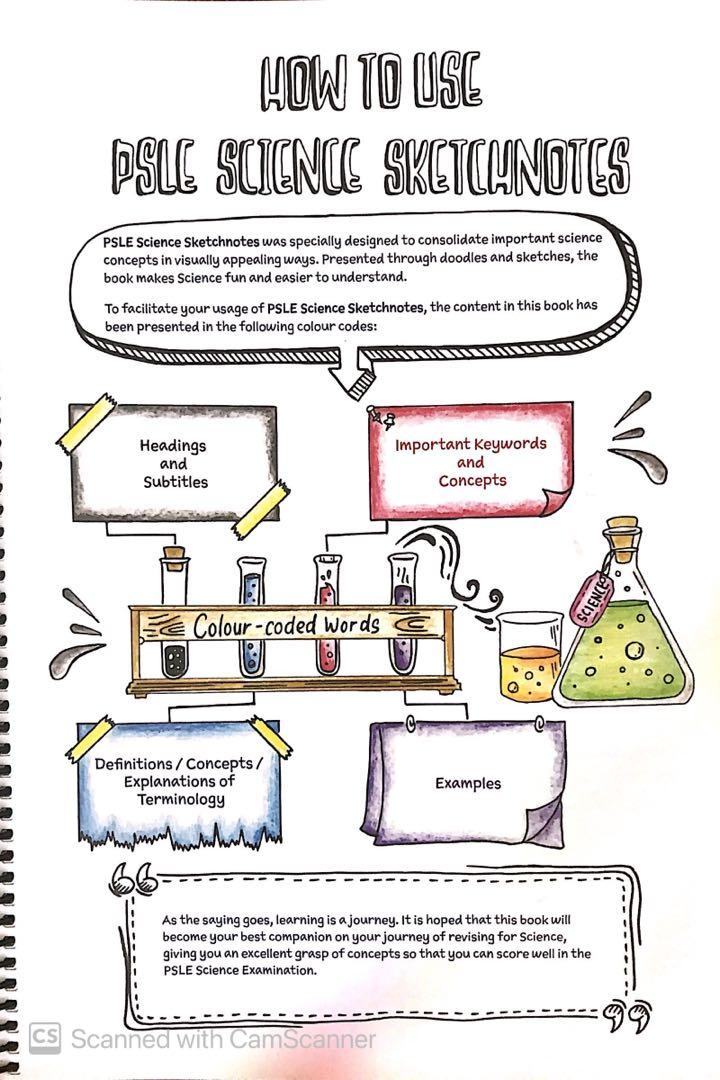 HOW TO USE
PSLE SCIENCE SKETCHNOTES
PSLE Science Sketchnotes was specially designed to consolidate important science
concepts in visually appealing ways. Presented through doodles and sketches, the
book makes Science fun and easier to understand.
To facilitate your usage of PSLE Science Sketchnotes, the content in this book has
been presented in the following colour codes:
Headings
and
Subtitles
Important Keywords
and
Concepts
SCIENCE
Colour-coded words
Definitions / Concepts /
Explanations of
Terminology
Examples
As the saying goes, learning is a journey. It is hoped that this book will
become your best companion on your journey of revising for Science,
giving you an excellent grasp of concepts so that you can score well in the
PSLE Science Examination.
CS Scanned with CamScanner